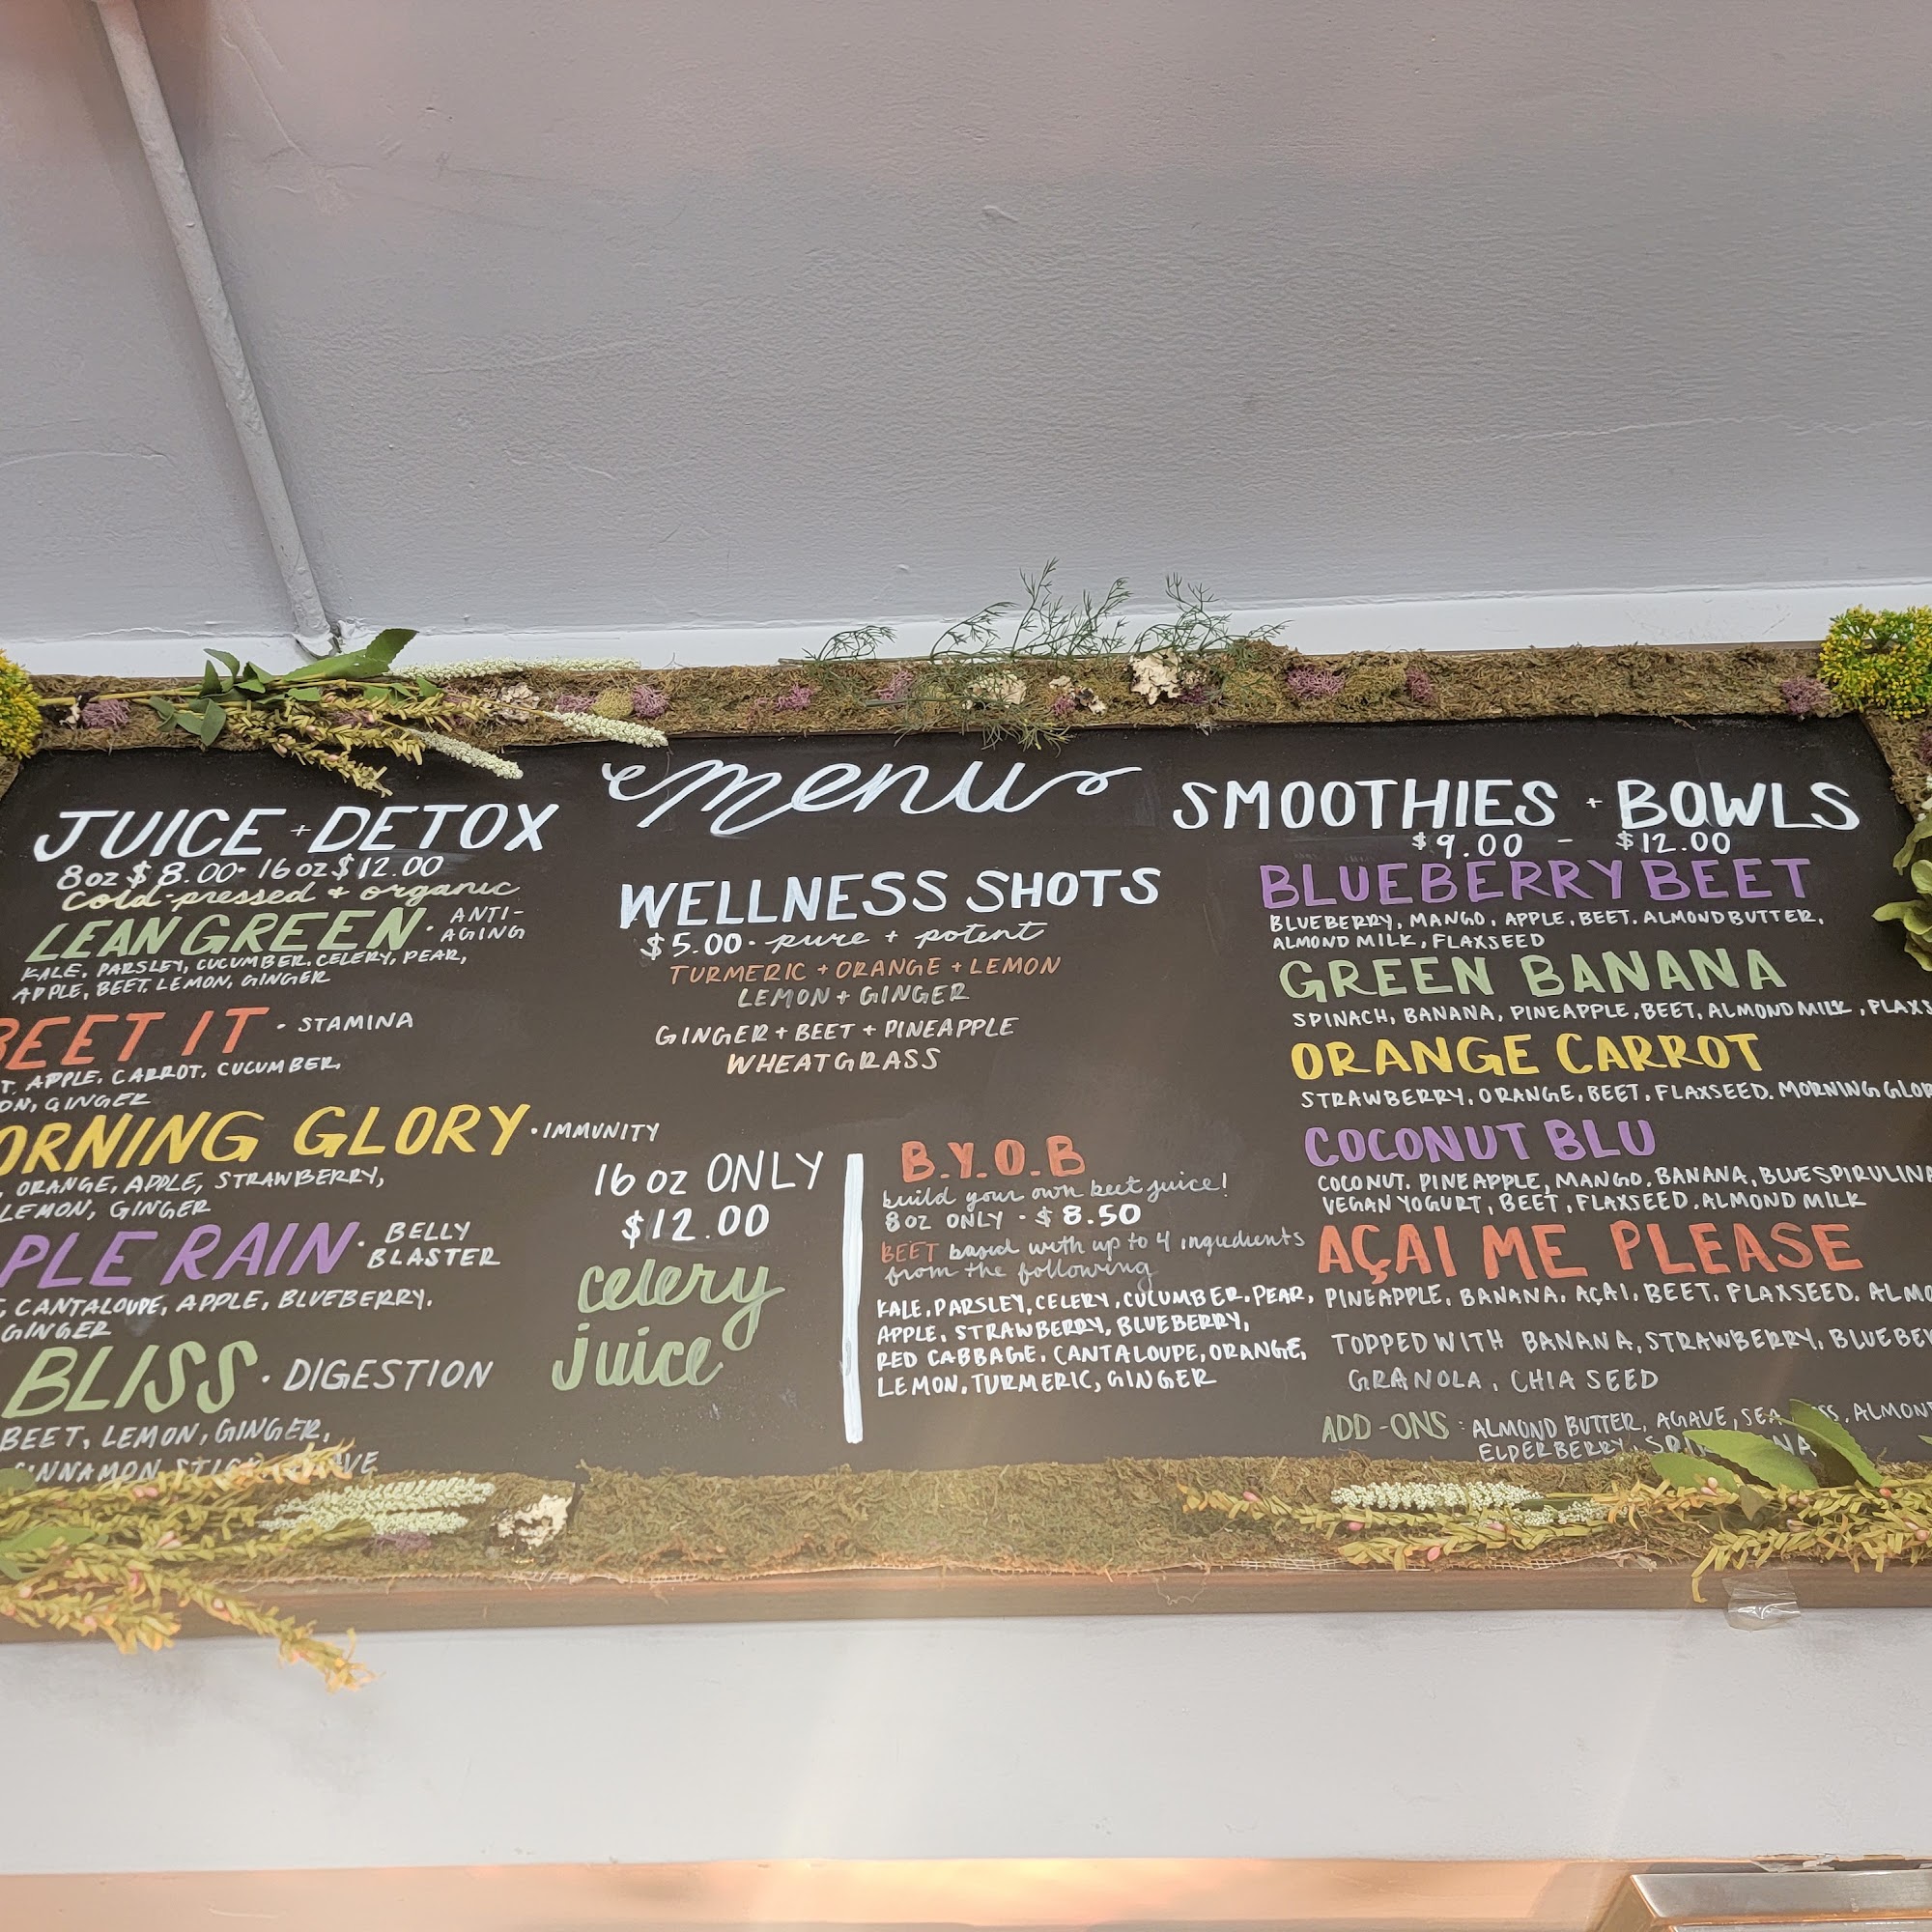 menu
JUICE + DETOX
8oz $8.00 · 16oz $12.00
Cold-pressed + organic
LEAN GREEN · ANTI-
AGING
KALE, PARSLEY, CUCUMBER, CELERY, PEAR,
APPLE, BEET, LEMON, GINGER
BEET IT · STAMINA
APPLE, CARROT, CUCUMBER,
GINGER
GLORY · IMMUNITY
ORANGE, APPLE, STRAWBERRY,
LEMON, GINGER
RAIN · BELLY
BLASTER
CANTALOUPE, APPLE, BLUEBERRY,
GINGER
BLISS · DIGESTION
BEET, LEMON, GINGER,
CINNAMON
WELLNESS SHOTS
$5.00 · pure + potent
TURMERIC + ORANGE + LEMON
LEMON + GINGER
GINGER + BEET + PINEAPPLE
WHEATGRASS
16 oz ONLY
$12.00
celery
juice
B.Y.O.B
build your own beet juice!
8oz ONLY - $8.50
BEET based with up to 4 ingredients
from the following
KALE, PARSLEY, CELERY, CUCUMBER, PEAR,
APPLE, STRAWBERRY, BLUEBERRY,
RED CABBAGE, CANTALOUPE, ORANGE,
LEMON, TURMERIC, GINGER
SMOOTHIES + BOWLS
$9.00 - $12.00
BLUEBERRY BEET
BLUEBERRY, MANGO, APPLE, BEET, ALMOND BUTTER,
ALMOND MILK, FLAXSEED
GREEN BANANA
SPINACH, BANANA, PINEAPPLE, BEET, ALMOND MILK,
ORANGE CARROT
STRAWBERRY, ORANGE, BEET, FLAXSEED, MORNING
COCONUT BLU
COCONUT, PINEAPPLE, MANGO, BANANA, BLUE SPIRULINA
VEGAN YOGURT, BEET, FLAXSEED, ALMOND MILK
AÇAI ME PLEASE
PINEAPPLE, BANANA, AÇAI, BEET, FLAXSEED,
TOPPED WITH BANANA, STRAWBERRY,
GRANOLA, CHIA SEED
ADD-ONS: ALMOND BUTTER, AGAVE, SEA
ELDERBERRY,